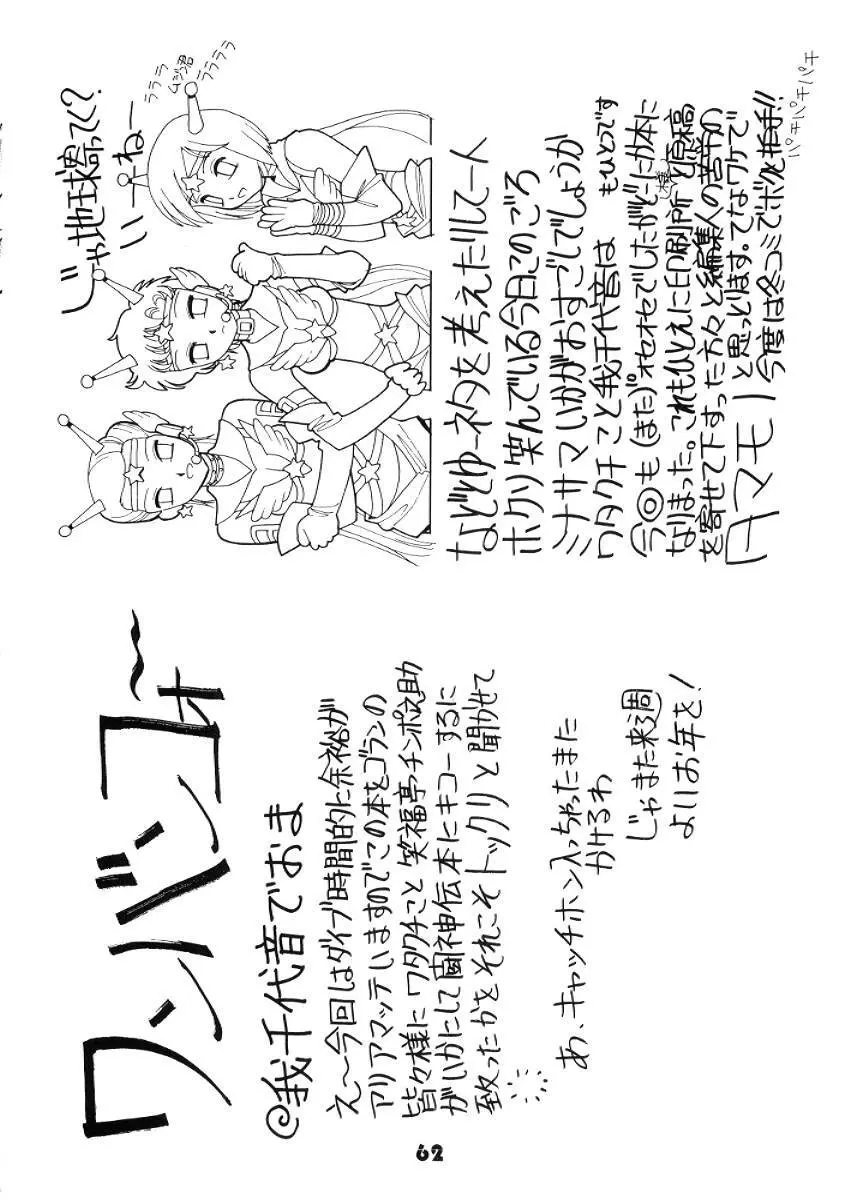 ワンバンコォ〜
@我千代音でおま
え〜今回はダイブ時間的に余裕が
アリアマッテいますのでこの本をゴランの
皆々様に ワタクチこと 笑福亭チンポ之助
がいかにして 闘神伝本にキコーするに
致ったかをそれこそトックリと聞かせて
あ、キャッチホン入っちゃったまた
かけるわ
じゃまた来週
よいお年を!
じゃ地球寄ってく?
いーねー
ラララ
ムジン君
ララララ
などとゆーネタを考えたりして一人
ホクソ笑んでいる今日このごろ
ミナサマいかがおすごしでしょうか
ワタクチこと我千代音は もひとつです
今回も(また)オセオセでしたがどーにか本に
なりまった。これもひとえに印刷所(爆)と原稿
を寄せて下すった方々と編集人の苦労の
タマモノ
と思っとります。てなワケで
今度は冬コミでボク と握手!!
パチパチパチパチ
62